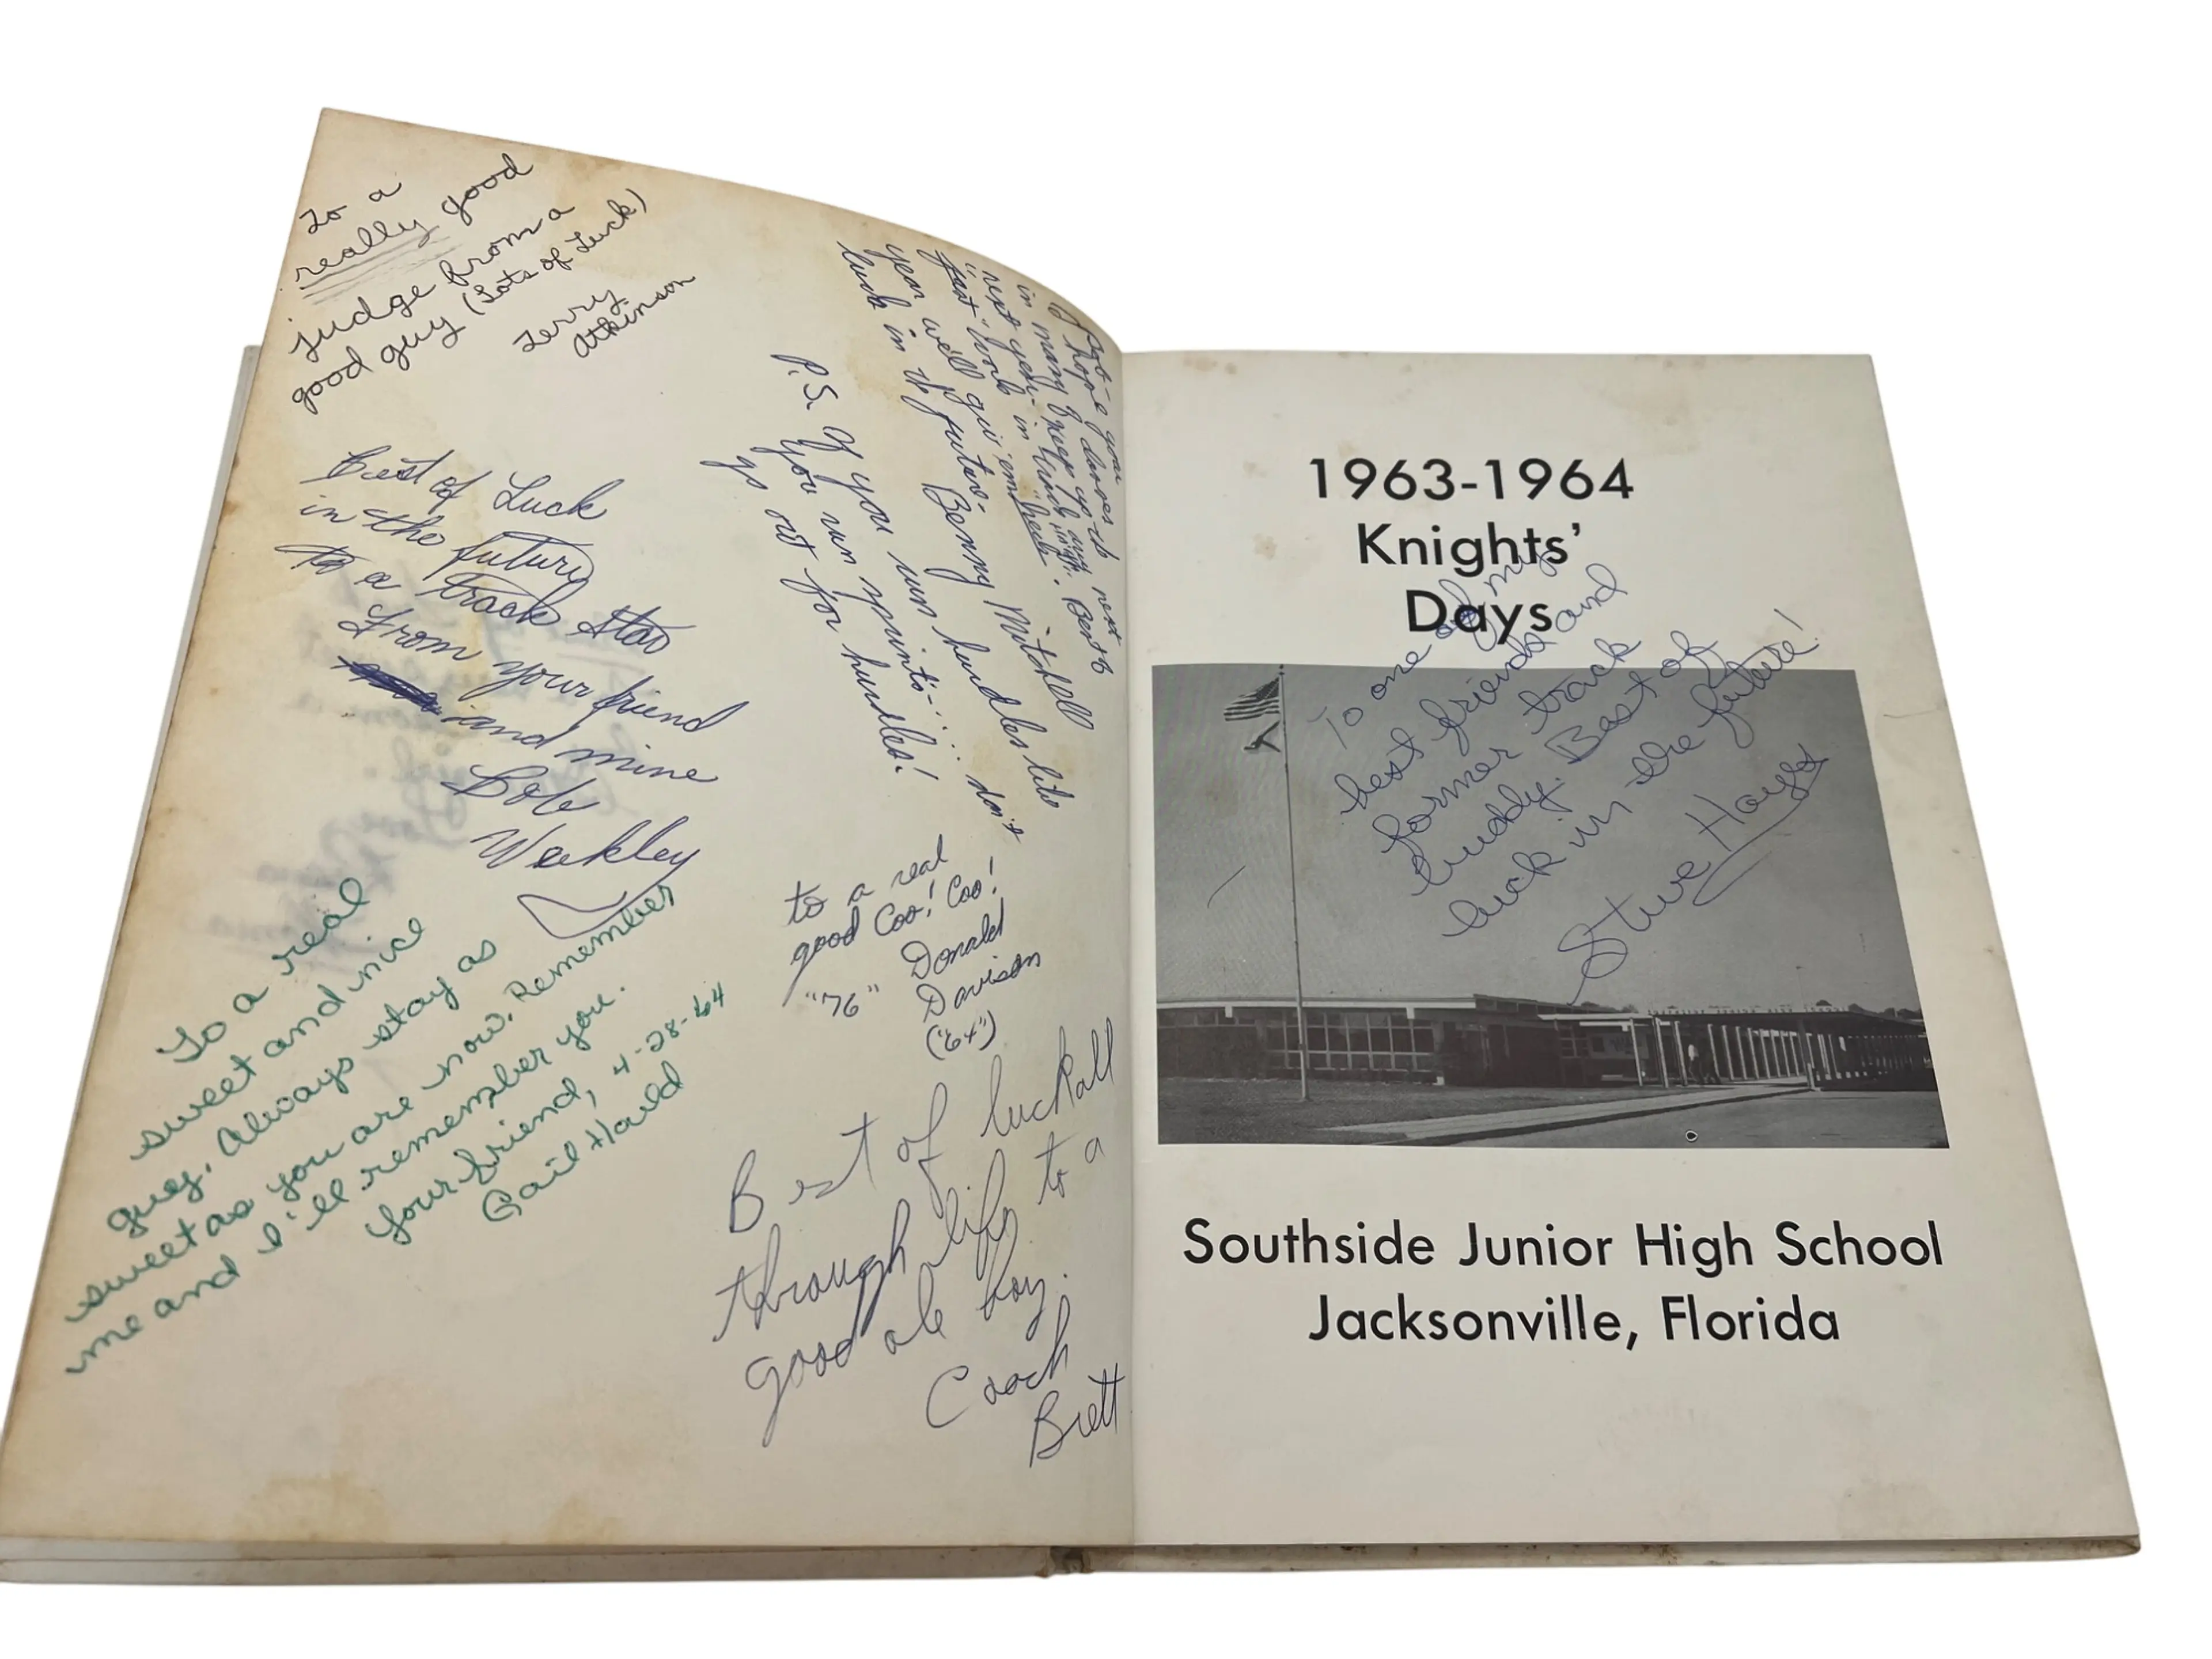 To a
really good
judge from a
good guy (Lots of Luck)
Terry
Atkinson
Best of Luck
in the future
to a track star
From your friend
and mine
Bob
Weekley
To a real
sweet and nice
guy. Always stay as
sweet as you are now. Remember
me and I'll remember you.
Your friend, 4-28-64
Gail Hauld
Bob-
I hope your
in many
next year-
"just" work in
year we'll give 'em heck. Best of
luck in th future-
Benny Mitchell
P.S. If you run hurdles like
you run sprints..... don't
go out for hurdles!
to a real
good Coo! Coo!
"76" Donald
Davison
("64")
Best of luck all
through life to a
good ole boy.
Coach
Brett
1963-1964
Knights'
Days
To one of my
best friends and
former track
buddy. Best of
luck in the future!
Steve Hays
Southside Junior High School
Jacksonville, Florida